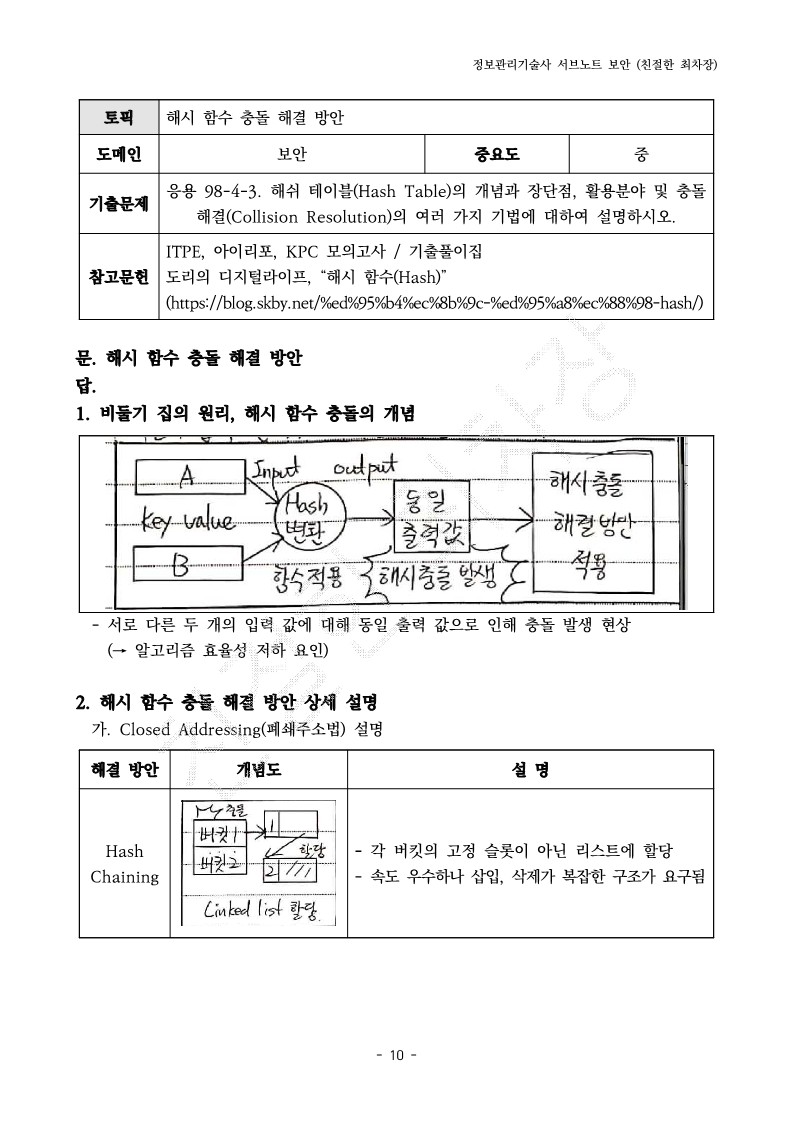 정보관리기술사 서브노트 보안 (친절한 최차장)
토픽 해시 함수 충돌 해결 방안
도메인 보안 중요도 중
기출문제 응용 98-4-3. 해쉬 테이블(Hash Table)의 개념과 장단점, 활용분야 및 충돌
해결(Collision Resolution)의 여러 가지 기법에 대하여 설명하시오.
참고문헌 ITPE, 아이리포, KPC 모의고사 / 기출풀이집
도리의 디지털라이프, “해시 함수(Hash)”
(https://blog.skby.net/%ed%95%b4%ec%8b%9c-%ed%95%a8%ec%88%98-hash/)
문. 해시 함수 충돌 해결 방안
답.
1. 비둘기 집의 원리, 해시 함수 충돌의 개념
A Input output
Key value Hash 변환 동일 출력값 해시충돌 해결방안 적용
B 함수적용 해시충돌 발생
- 서로 다른 두 개의 입력 값에 대해 동일 출력 값으로 인해 충돌 발생 현상
(→ 알고리즘 효율성 저하 요인)
2. 해시 함수 충돌 해결 방안 상세 설명
가. Closed Addressing(폐쇄주소법) 설명
해결 방안 개념도 설 명
Hash
Chaining
충돌
버킷1 1
할당
버킷2 2
Linked list 할당.
- 각 버킷의 고정 슬롯이 아닌 리스트에 할당
- 속도 우수하나 삽입, 삭제가 복잡한 구조가 요구됨
친절한 최차장
- 10 -